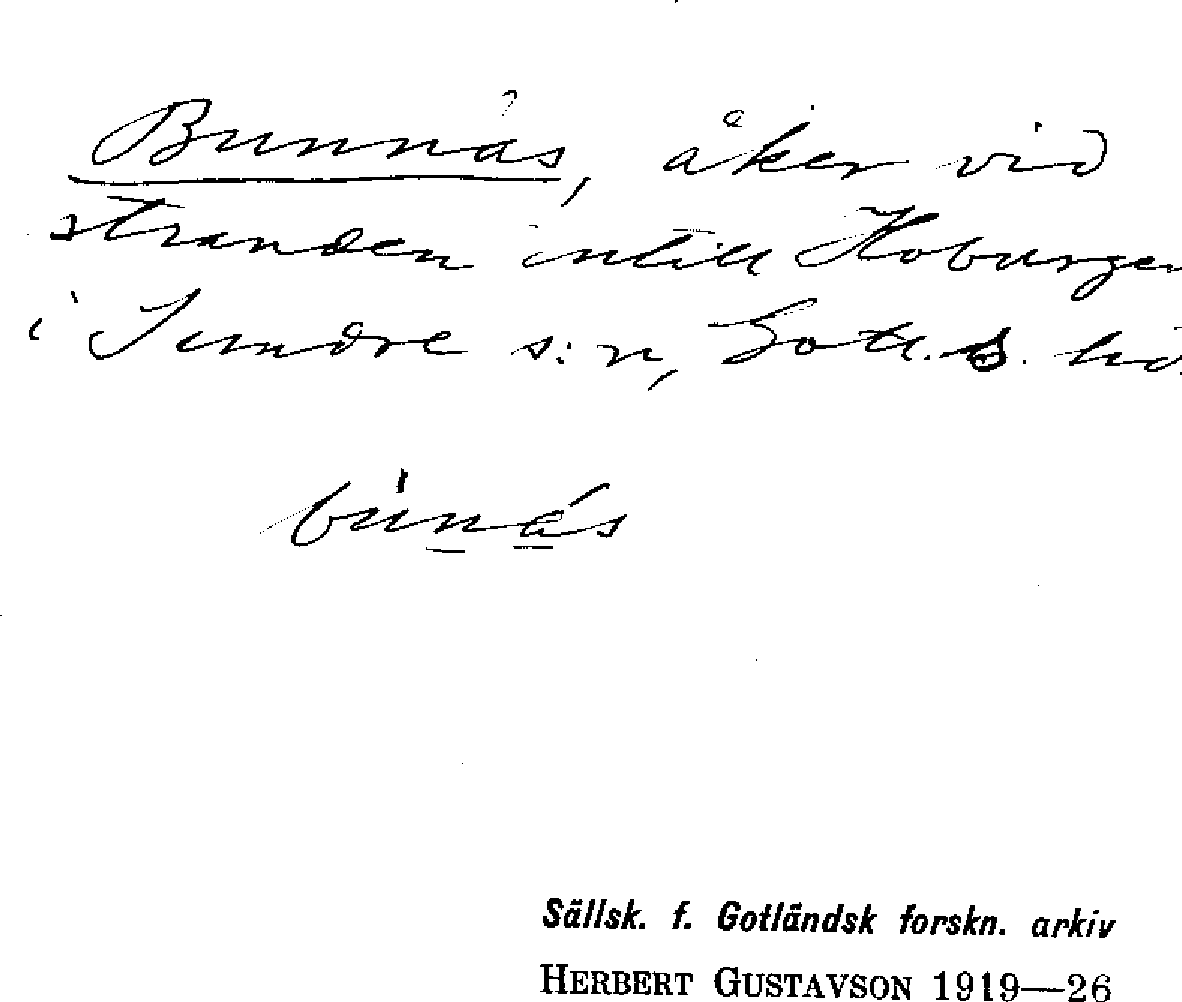 Bunnås, åker vid
stranden intill Hoburgen
i Sundre s:n, Gotl. S. hd.
búnás
Sällsk. f. Gotländsk forskn. arkiv
HERBERT GUSTAVSON 1919—26